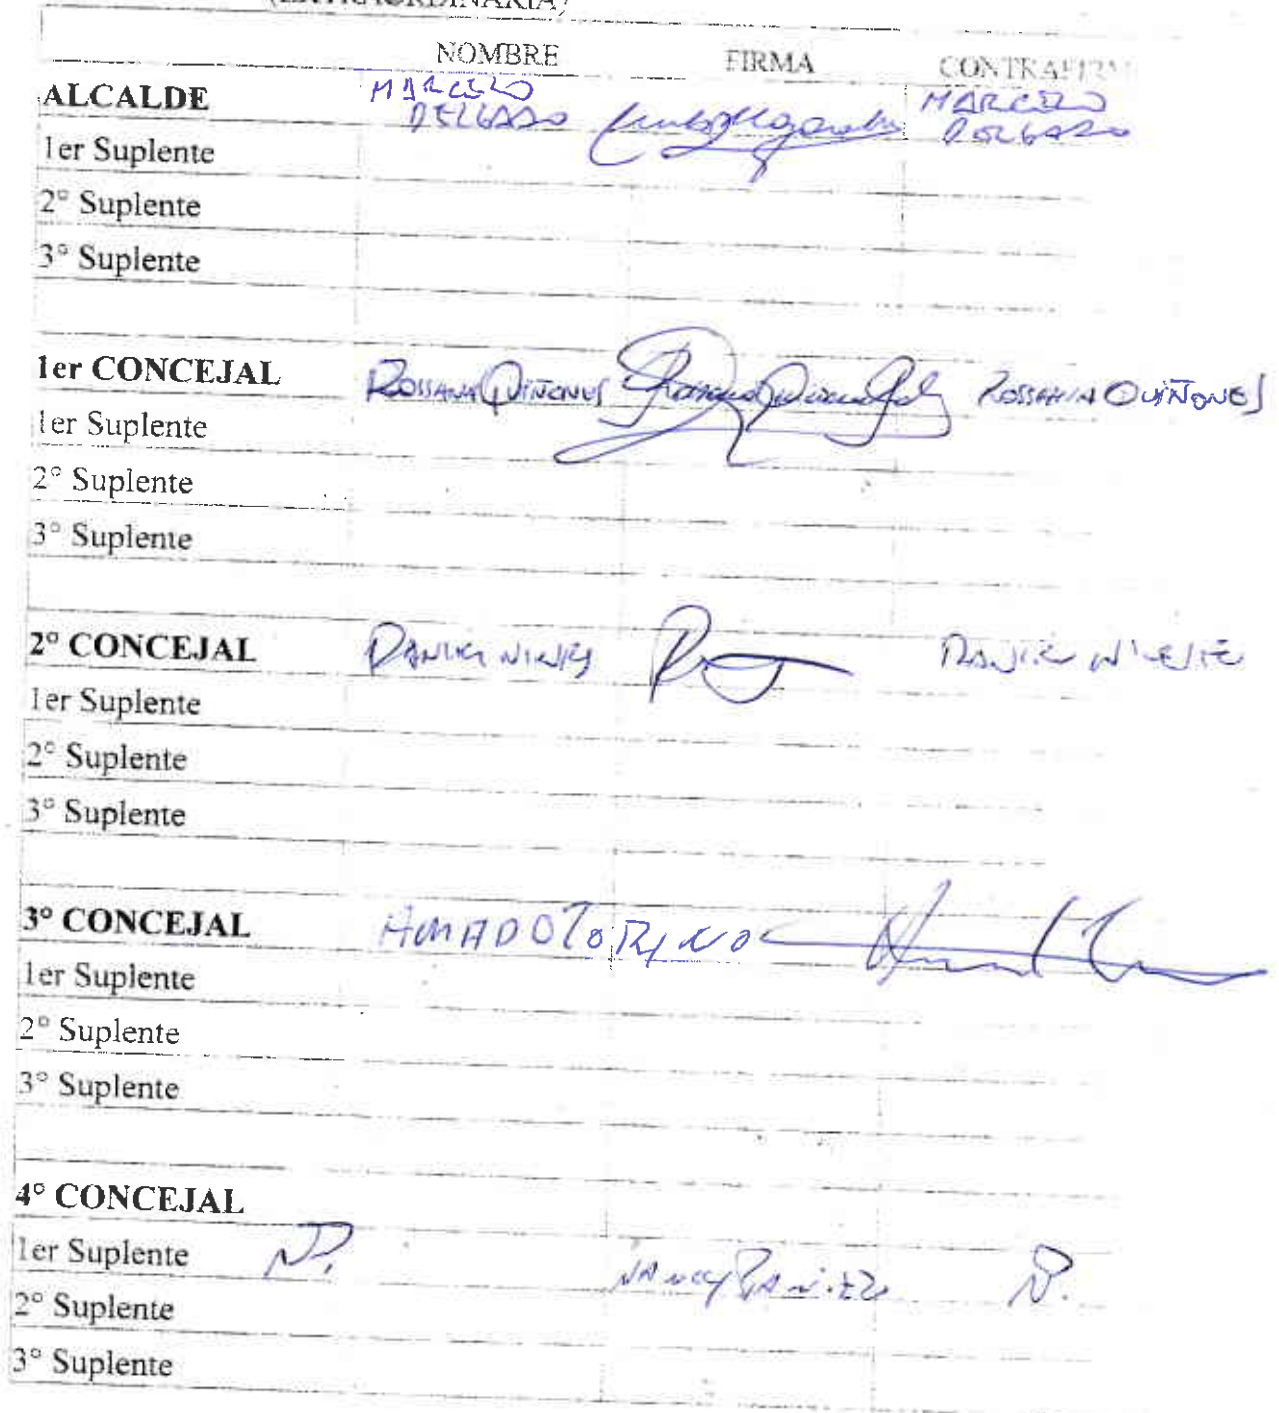 (EXTRAORDINARIA)
NOMBRE FIRMA
ALCALDE MARCELO MARCELO
DELGADO DELGADO
1er Suplente
2° Suplente
3° Suplente
1er CONCEJAL ROSSANA QUIÑONES ROSSANA QUIÑONES
1er Suplente
2° Suplente
3° Suplente
2° CONCEJAL DANIEL DANIEL
1er Suplente
2° Suplente
3° Suplente
3° CONCEJAL AMADO TORINO
1er Suplente
2° Suplente
3° Suplente
4° CONCEJAL
1er Suplente NANCY
2° Suplente
3° Suplente